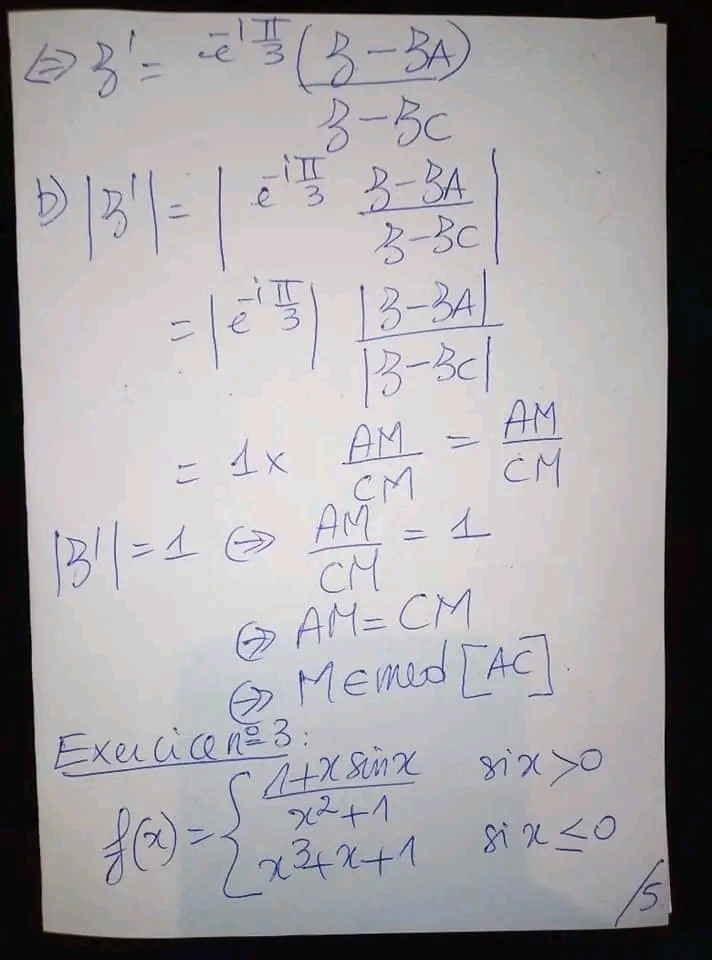 ⇔ z' = e^{-iπ/3} (z - z_A) / (z - z_C)
b) |z'| = | e^{-iπ/3} (z - z_A) / (z - z_C) |
= | e^{-iπ/3} | |z - z_A| / |z - z_C|
= 1 × AM / CM = AM / CM
|z'| = 1 ⇔ AM / CM = 1
⇔ AM = CM
⇔ M ∈ med [AC].
Exercice n° 3 :
f(x) = { (1 + x sin x) / (x² + 1) si x > 0
x³ + x + 1 si x ≤ 0
/5